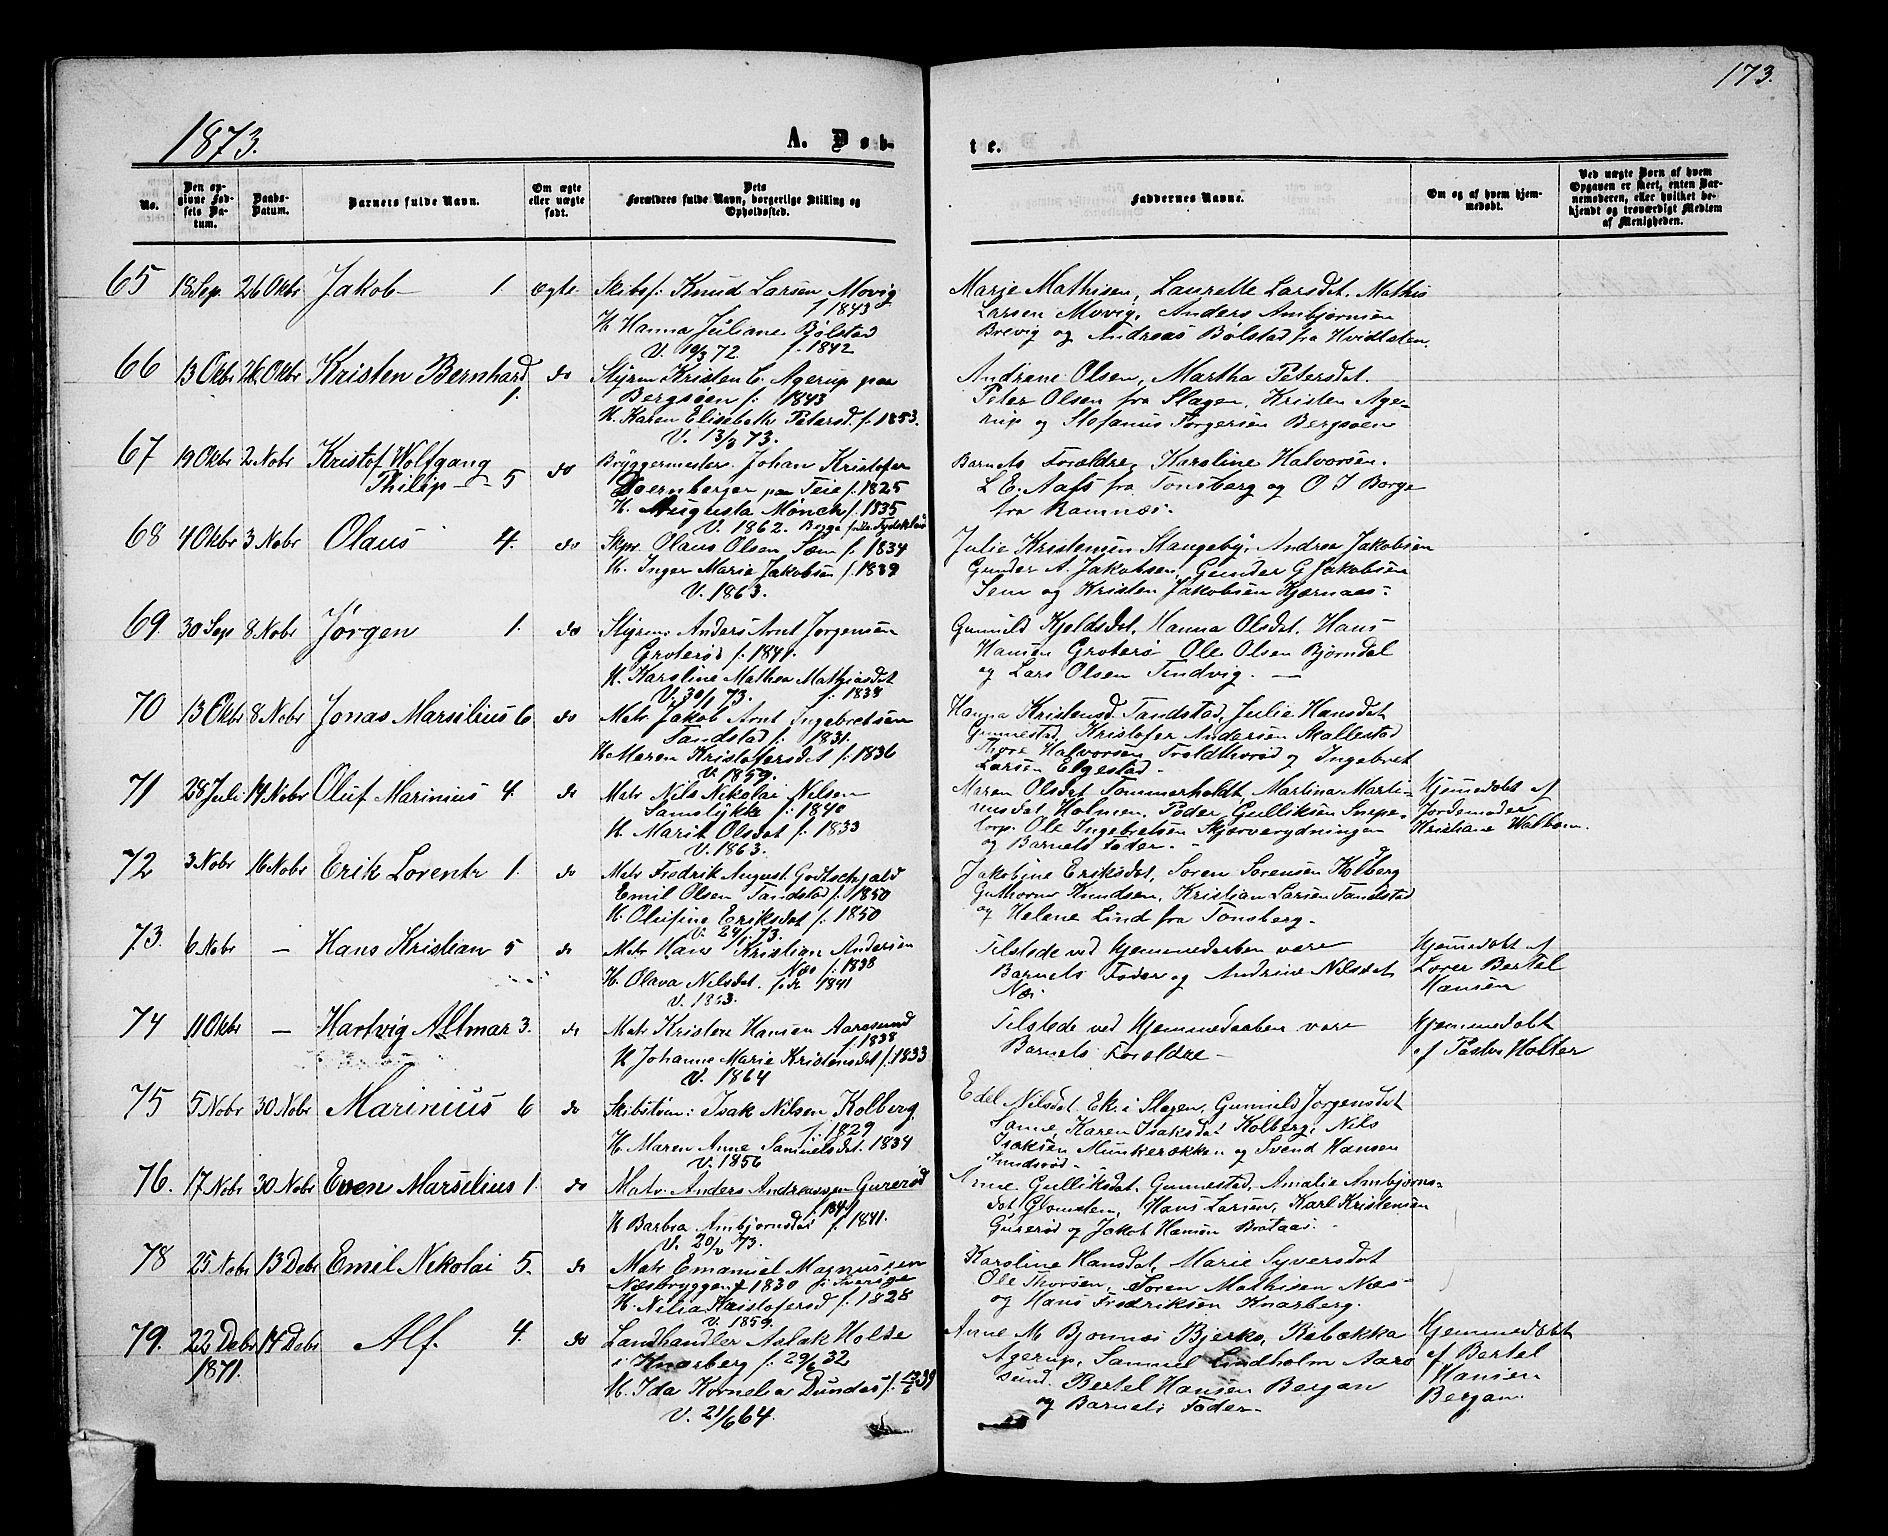 173.
1873.
A. Døb-
te.
No.
Den op-
givne Fød-
sels Da-
tum.
Daabs-
Datum.
Barnets fulde Navn.
Om ægte
eller uægte
født.
Dets
Forældres fulde Navn, borgerlige Stilling og
Opholdssted.
Faddernes Navne.
Om og af hvem hjem-
medøbt.
Ved uægte Børn af hvem
Opgaven er skeet, enten Bar-
nemoderen, eller hvilket be-
kjendt og troværdigt Medlem
af Menigheden.
65 18 Sep. 26 Oktbr Jakob 1. ægte Skibsf: Knud Larsen Movig
f 1843
H. Hanna Juliane Bølstad
V. 19/3 72. f. 1842
Marie Mathisen, Laurette Larsdat. Mathis
Larsen Movig, Anders Ambjørnsen
Brevig og Andreas Bølstad fra Hvidtsten.
66 13 Oktbr 26 Oktbr Kristen Bernhard 1. do Styrm Kristen C. Agerup paa
Bergsøen f. 1843
H. Karen Elisabeth Petersd. f. 1853.
V. 13/3 73.
Andrine Olsen, Martha Petersdat.
Peter Olsen fra Slagen, Kristen Age-
rup og Stefanus Torgersen Bergsøen
67 19 Oktbr 2 Nobr Kristof Wolfgang
Philip 5 do Bryggermester. Johan Kristofer
Doernberger paa Teie f. 1825
H. Augusta Mönch f. 1835
V. 1862. Begge fra Tydskland
Barnets Forældre, Karoline Halvorsen.
L E. Aass fra Tønsberg og O I Borge
fra Ramnæs.
68 4 Oktbr 3 Nobr Olaus 4. do Skpr. Olaus Olsen Sem f. 1834
H. Inger Marie Jakobsen f. 1839
V. 1863.
Julie Kristensen Stangeby, Andrea Jakobsen
Gunder A Jakobsen, Gunder G Jakobsen
Sem og Kristen Jakobsen Kjærnaes
69. 30 Sep 8 Nobr Jørgen 1. do Styrm: Anders Arnt Jørgensen
Groterød f. 1841.
H. Karoline Mathea Mathiasdat
V. 30/1 73. f. 1838
Gunnild Kjeldsdat, Hanna Olsdat. Hans
Hansen Groterø Ole Olsen Bjørndal
og Lars Olsen Tindvig.
70 13 Oktbr 8 Nobr Jonas Marsilius 6 do Matr Jakob Arnt Ingebretsen
Tandstad f. 1831.
H. Maren Kristofersdat f. 1836
V. 1859.
Hanna Kristensd Tandstad, Julie Hansdat
Gunnestad, Kristofer Andersen Skallestad
Thore Halvorsen Troldthorød og Ingebret
Larsen Elgestad
71 28 Juli 14 Nobr Oluf Marinius 4. do Matr Nils Nikolai Nilsen
Samslykke f. 1840
H. Marit Olsdat f. 1833
V. 1863.
Maren Olsdat Sommerholdt Martina Marti-
nusdat Holmen, Peder Gulliksen Snipe-
torp. Ole Ingebretsen Skjærverydningen
og Barnets Fader.
Hjemmedøbt af
Jordemoder
Kristiane Walbom.
72 3 Nobr 16 Nobr Erik Lorentz 1. do Matr Fredrik August Godtschald
Emil Olsen Tandstad f. 1850
H. Olufine Eriksdat f. 1850
V. 24/1 73.
Jakobine Eriksdat, Søren Sørensen Kolberg
Guthorm Knudsen, Kristian Larsen Tandstad
og Helene Lind fra Tønsberg.
73. 6 Nobr – Hans Kristian 5 do Matr Hans Kristian Andersen
Næs f. 1838
H. Olava Nilsdat. 1841
V. 1863.
Tilstede ved Hjemmedaaben vare
Barnets Fader og Andrine Nilsdat
Næs
Hjemmedøbt af
Lærer Bertel
Hansen
74 11 Oktbr – Hartvig Altmar 3. do Matr Kristen Hansen Aarøsund
f. 1838
H Johanne Marie Kristensdat f. 1833
V. 1864
Tilstede ved Hjemmedaaben vare
Barnets Forældre
Hjemmedøbt
af Pastor Holter
75 5 Nobr 30 Nobr Marinius 6 do Skibstøm: Isak Nilsen Kolberg
f. 1829
H. Maren Anne Samuelsdat. 1834
V. 1856
Edel Nilsdat Ek i Slagen, Gunnild Jørgensdat
Sanne, Karen Isaksdat Kolberg, Nils
Isaksen Munkerækken og Svend Hansen
Sundsrød
76. 17 Nobr 30 Nobr Even Marsilius 1. do Matr. Anders Andreassen Gurerød
f. 1841
H Barbra Ambjørnsdat f. 1841.
Anne Gulliksdat. Gunnestad, Amalie Ambjørns-
dat Glomsten, Hans Larsen, Karl Kristensen
Gurerød og Jakob Hansen Brataas
78 25 Nobr 13 Debr Emil Nikolai 5. do Matr Emanuel Magnussen
Næsbryggen f 1830 f: Sverige
H. Nilia Kristofersd f. 1828
V. 1859.
Karoline Hansdat, Marie Syversdat
Ole Thorsen, Søren Mathisen Næs
og Hans Fredriksen Knarberg.
79. 22 Debr
1871. 14 Debr Alf. 4. do Landhandler Aslak Holde
i Knarberg f. 29/6 32
H. Ida Kornelia Dunder f. 12/6 39
V. 21/6 64.
Anne M Bjønnæs Bjerkø, Rebekka
Agerup, Samuel Lindholm Aarø
sund. Bertel Hansen Bergan
og Barnets Fader
Hjemmedøbt
af Bertel
Hansen
Bergan.